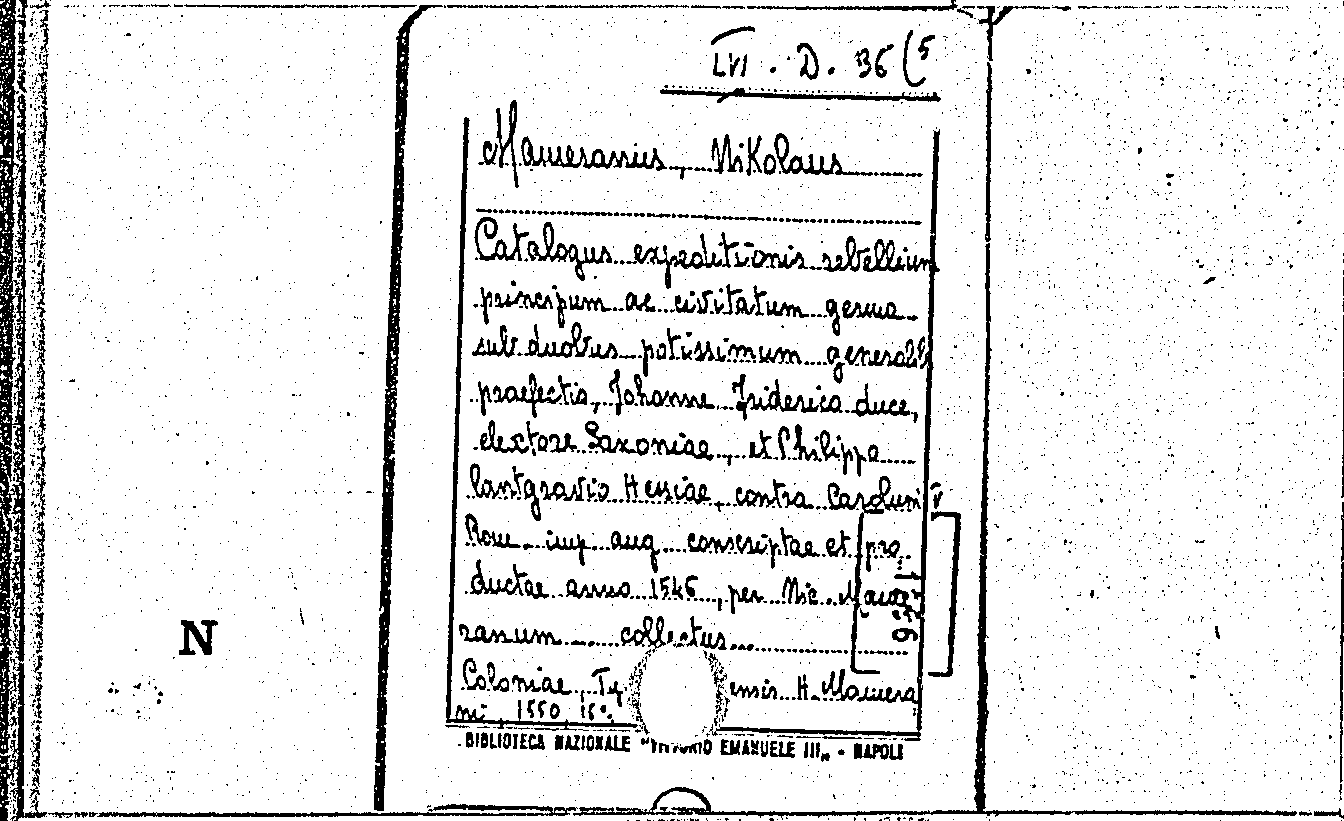 LVI. D. 36 (5
Mameranus, Nikolaus
Catalogus expeditionis rebellium
principum ac civitatum germa.
sub duobus potissimum generalib
praefectis, Johanne Friderico duce,
electore Saxoniae, et Philippo
lantgravio Hessiae, contra Carolum V
Rom. imp. aug. conscriptae et pro
ductae anno 1546, per Nic. Mame
ranum ... collectus...
Coloniae, Ty ensis H. Mamera
ni, 1550, 16°.
BIBLIOTECA NAZIONALE "VITTORIO EMANUELE III" - NAPOLI
N